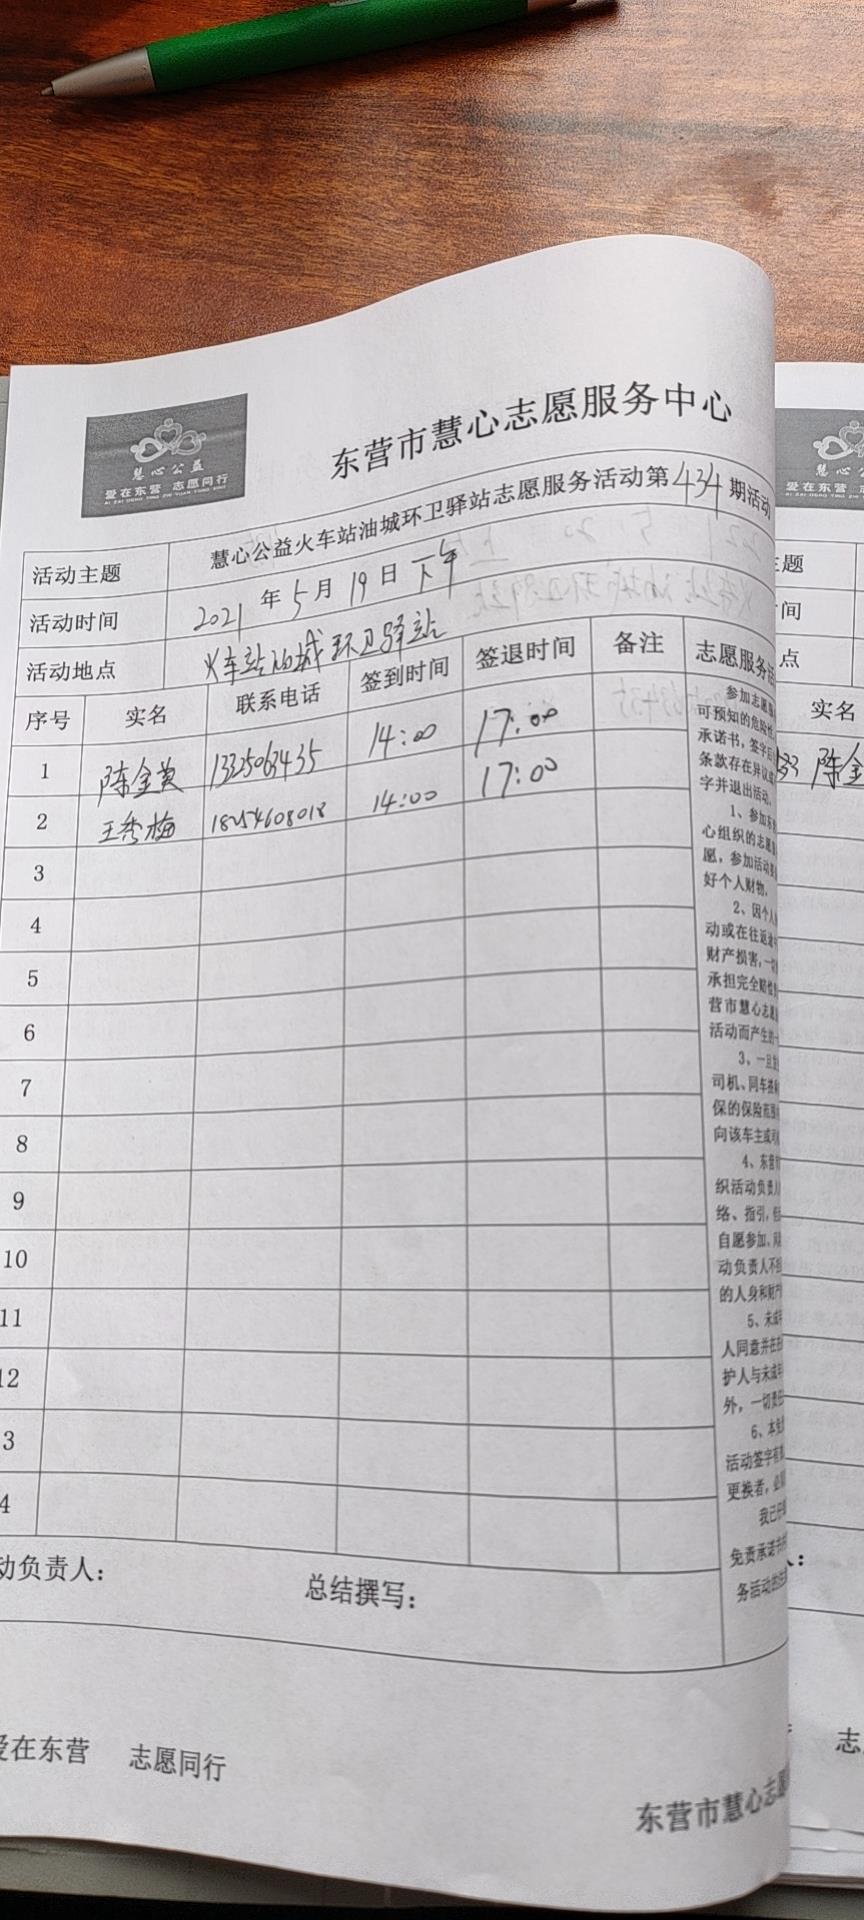 东营市慧心志愿服务中心
慧心公益
爱在东营 志愿同行
AI ZAI DONG YING ZHI YUAN TONG XING
活动主题 慧心公益火车站油城环卫驿站志愿服务活动第434期活动
活动时间 2021年5月19日下午
活动地点 火车站油城环卫驿站
序号 实名 联系电话 签到时间 签退时间 备注 志愿服务
1 陈金英 1325063435 14:00 17:00
2 王秀梅 18254608018 14:00 17:00
3
4
5
6
7
8
9
10
11
12
3
4
参加志愿
可预知的危险性
承诺书,签字后
条款存在异议
字并退出活动。
1、参加东
心组织的志愿
愿,参加活动
好个人财物。
2、因个人
动或在往返途
财产损害,一切
承担完全赔偿
营市慧心志愿
活动而产生的一
3、一旦发
司机、同车搭
保的保险范围
向该车主或司
4、东营市
织活动负责人
络、指引,但
自愿参加、风
动负责人不
的人身和财产
5、未成
人同意并在
护人与未成年
外,一切责任
6、本免
活动签字有
更换者,必
我已仔
免责承诺书
务活动的
动负责人: 总结撰写:
爱在东营 志愿同行
东营市慧心志愿
主题
时间
点
实名
33 陈金
人:
志